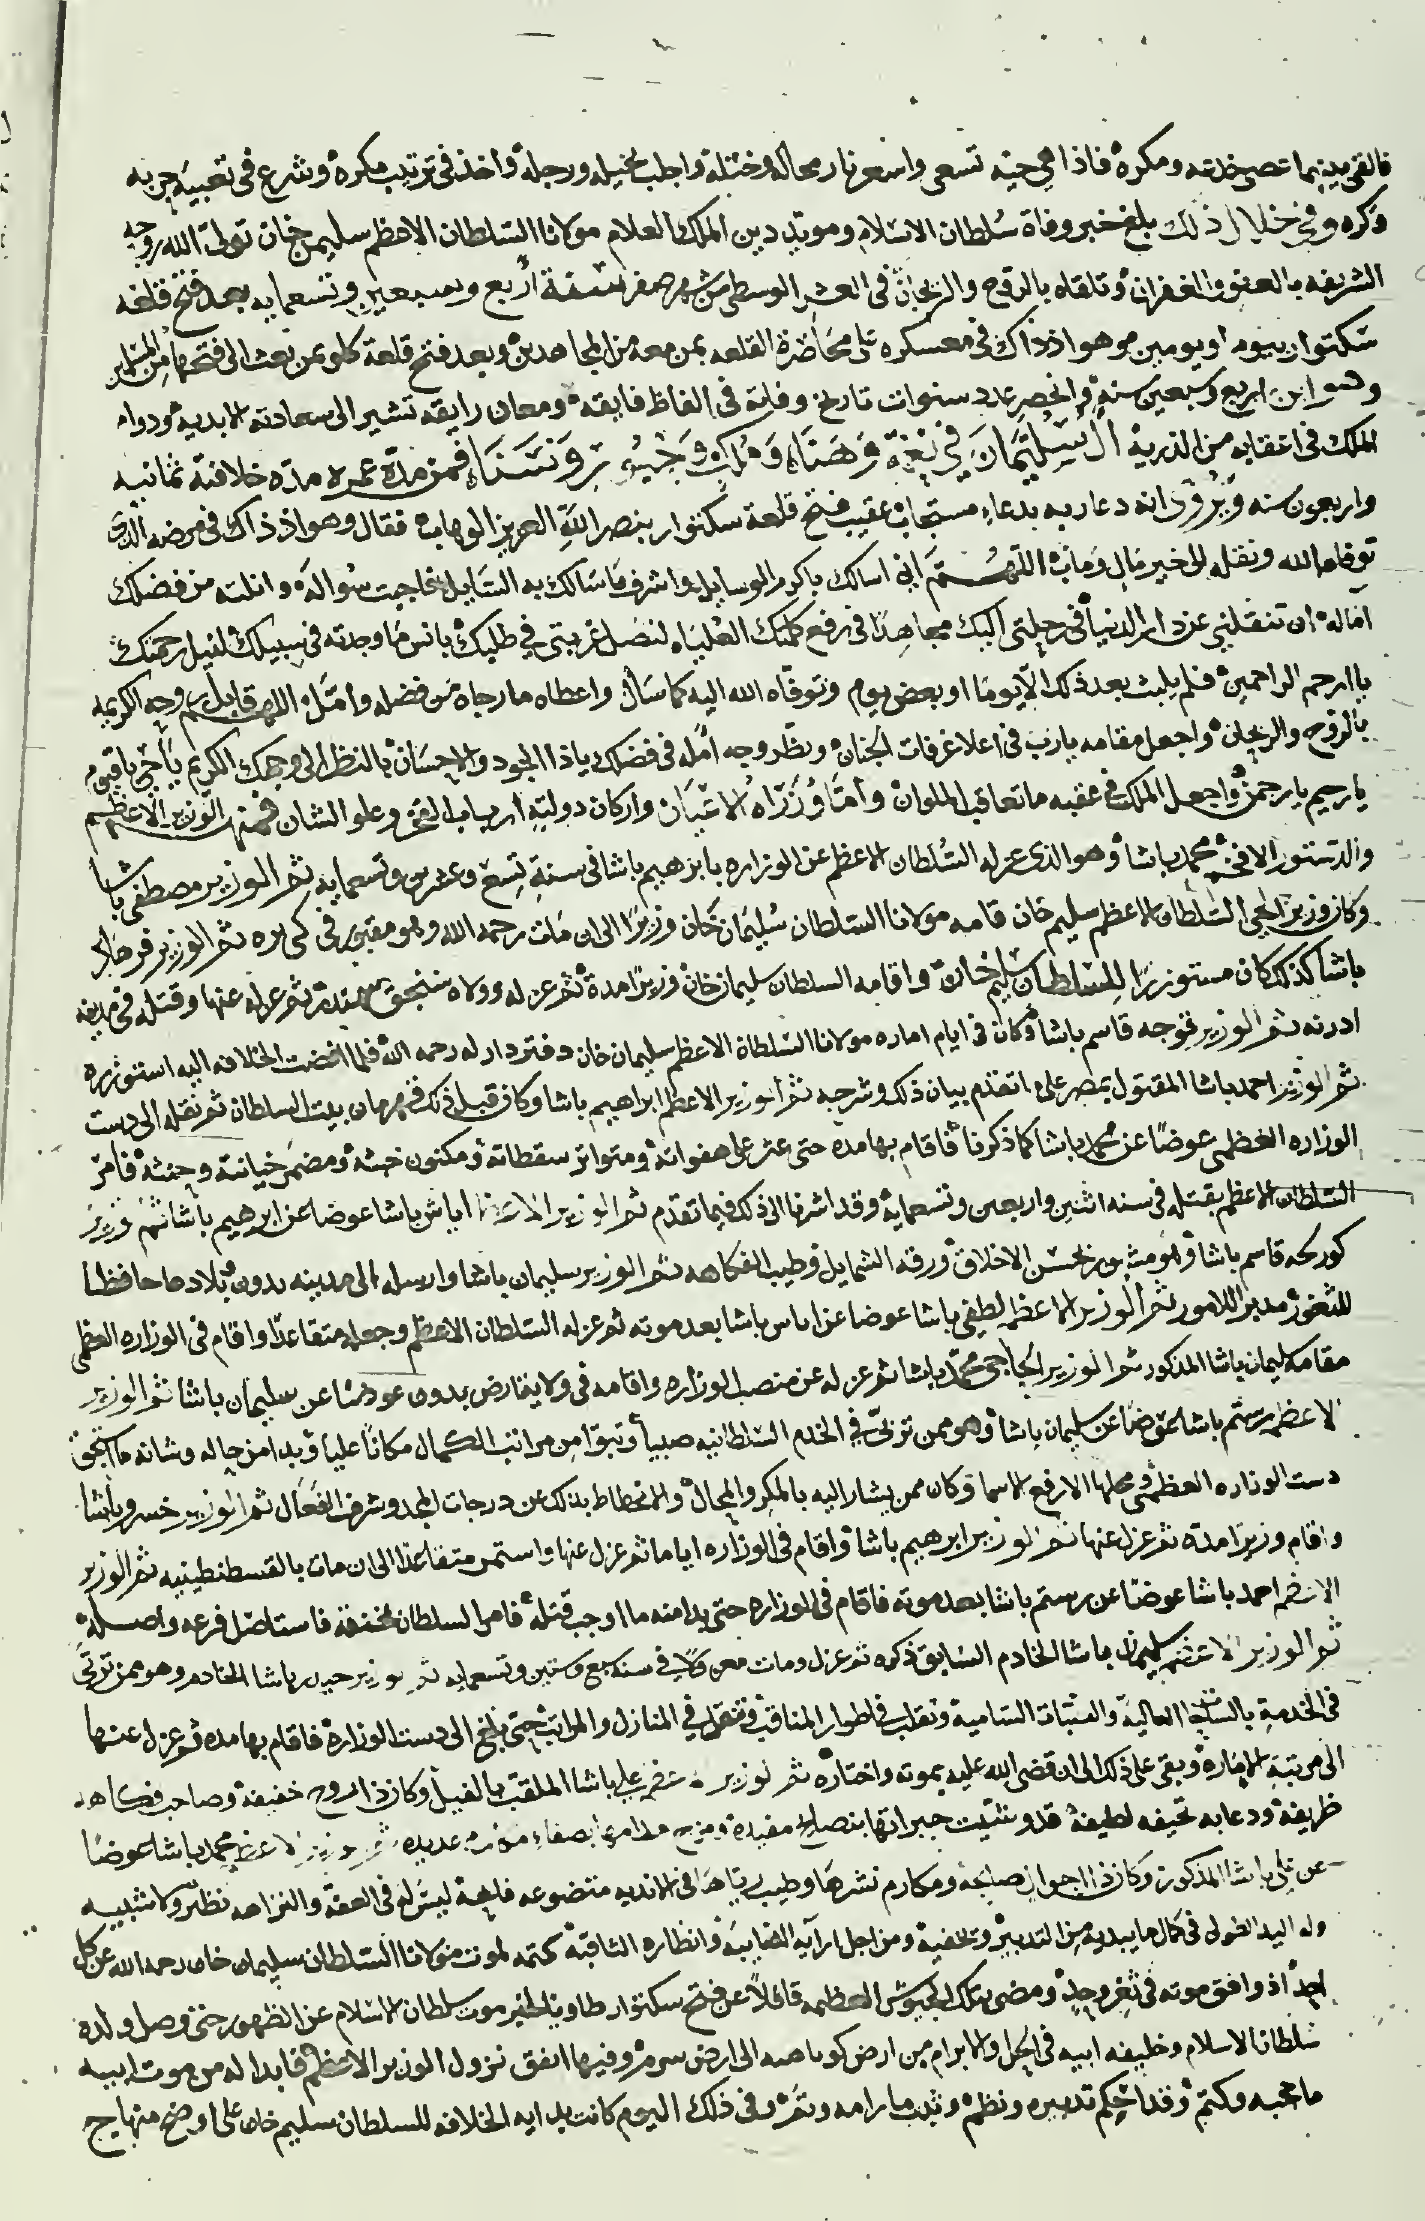 فالقى بينهما عصى خدعته ومكره فاذا هي حية تسعى واسعر نار محاله وختله واجلب بخيله ورجله واخذ في ترتيب مكره وشرع في تعبية حربه
وكره وفي خلال ذلك بلغ خبر وفاة سلطان الاسلام ومويد دين الملك العلام مولانا السلطان الاعظم سليمن خان تولى الله روحه
الشريفه بالعفو والغفران وتلقاه بالروح والريحان في العشر الوسطى من شهر صفر سنة أربع وسبعين وتسعمايه بعد فتح قلعه
سكتوار بيوم او يومين وهو اذ ذاك في معسكره محاضرة القلعه بمن معه من المجاهدين وبعد فتح قلعة كلو بمن بعث الى فتحها من
وهو ابن اربع وسبعين سنة وانحصر عدد سنوات تاريخ وفاته في الفاظ فايقه ومعان رايقه تشير الى سعادته الابديه ودوام
الملك في اعقابه من الذرية آل سليمان في نعمة وهناء وملك فمن مدة عمره مدة خلافته ثمانيه
واربعون سنه ويروى انه دعا ربه بدعاء مستجاب عقيب فتح قلعة سكتوار بنصر الله العزيز الوهاب فقال وهو اذ ذاك في مرضه الذي
توفاه الله ونقله الى خير مال ومآب اللهم اني اسالك باكرم الوسايل واشرف ما سالك به السايل فاجيب سواله وانلته من فضلك
اماله ان تنقلني عن دار الدنيا في رحلتي اليك مجاهدا في رفع كلمتك العلياء لتصل غربتي في طلبك بانس ما وجدته في سبيلك لنيل رحمتك
يا ارحم الراحمين فلم يلبث بعد ذلك الا يوما او بعض يوم وتوفاه الله اليه كما سأل واعطاه ما رجاه من فضله وأمّل اللهم قابل روحه الكريمه
بالروح والريحان واجعل مقامه يا رب في اعلا غرفات الجنان ونظر وجه أمله في فضلك يا ذا الجود والاحسان بالنظر الى وجهك الكريم يا حي يا قيوم
يا رحيم يا رحمن واجعل الملك في عقبه ما تعاقب الملوان وأما وزراه الاعيان واركان دولته ارباب الفخر وعلو الشان فمنهم الوزير الاعظم
والدستور الافخم محمد باشا وهو الذي عزله السلطان الاعظم عن الوزاره بابرهيم باشا في سنة تسع وعشرين وتسعمايه ثم الوزير مصطفى باشا
وكان وزير السلطان الاعظم سليم خان قامه مولانا السلطان سليمان خان وزيرا الى ان مات رحمه الله وهو مقبور في ثم الوزير فرهاد
باشا كذلك كان مستوزرا للسلطان سليم خان واقامه السلطان سليمان خان وزيرا مدة ثم عزله وولاه سنجق ثم عزله عنها وقتله في مدينه
ادرنه ثم الوزير قوجه قاسم باشا وكان في ايام اماره مولانا السلطاة الاعظم سليمان خان دفتردار له رحمه الله فلما افضت الخلافه اليه استوزره
ثم الوزير احمد باشا المقتول بمصر على ما تقدم بيان ذلك وشرحه ثم الوزير الاعظم ابراهيم باشا وكان قبل ذلك قهرمان بيت السلطان ثم نقله الى دست
الوزاره العظمى عوضا عن محمد باشا كما ذكرنا فاقام بها مده حتى عثر على هفواته ومتواتر سقطاته ومكنون خبثه ومضمر خيانته وحنثه فأمر
السلطان الاعظم بقتله في سنه اثنين واربعين وتسعماية وقد اشرنا الى ذلك فيما تقدم ثم الوزير الاعظم اياس باشا عوضا عن ابرهيم باشا ثم وزير
كورجه قاسم باشا وهو مشهور بحسن الاخلاق ورقة الشمايل وطيب الفكاهه ثم الوزير سليمان باشا وارسله الى مدينه بدون وبلادها حافظا
للثغور مدبرا للامور ثم الوزير الاعظم لطفي باشا عوضا عن اياس باشا بعد موته ثم عزله السلطان الاعظم وجعله متقاعدا واقام في الوزاره العظمى
مقامه سليمان باشا المذكور ثم الوزير الحاجي محمد باشا ثم عزله عن منصب الوزاره واقامه في ولايه بدون عوضا عن سليمان باشا ثم الوزير
الاعظم رستم باشا عوضا عن سليمان باشا وهو ممن تربى في الخدم السلطانيه صبيا وتبوا من مراتب الكمال مكانا عليا وبدا من حاله وشانه ما
دست الوزاره العظمى ومحلها الارفع الاسما وكان ممن يشار اليه بالمكر والمحال والانحطاط بذلك عن درجات المجد وشرف الفعال ثم الوزير خسرو باشا
واقام وزيرا مدة ثم عزل عنها ثم الوزير ابرهيم باشا واقام في الوزاره اياما ثم عزل عنها واستمر متقاعدا الى ان مات بالقسطنطينيه ثم الوزير
احمد باشا عوضا عن رستم باشا بعد موته فاقام في الوزاره حتى بدا منه ما اوجب قتله فامر السلطان بخنقه فاستاصل فرعه واصله
ثم الوزير الاعظم سليمان باشا الخادم السابق ذكره ثم عزل ومات معزولا في سنه سبع وستين وتسعمايه ثم الوزير حيدر باشا الخادم وهو ممن تربى
في الخدمة العالية والعتبات السامية وتقلب في اطوار المناقب وتنقل في المنازل والمراتب حتى بلغ الى دست الوزارة فاقام بها مده ثم عزل عنها
الى مرتبة الاماره وبقي على ذلك الى ان قضى الله عليه بموته واختاره ثم الوزير الاعظم علي باشا الملقب بالفيل وكان ذا روح خفيفة وصاحب فكاهه
ظريفة ودعابه لطيفة قد بنصايح مفيدة عديده ثم الوزير الاعظم محمد باشا عوضا
عن علي باشا المذكور وكان ذا احوال صالحة ومكارم نشرها وطيب رياها في الانديه متضوعه فايحة ليس له في العفه والنزاهه نظير ولا شبيه
وله اليد الطولى في كمال ما يبديه من التدبير وتخفيه ومن اجل ارآيه الصايبة وانظاره الثاقبة كتمه لموت مولانا السلطان سليمان خان رحمه الله عن كل
احد اذ وافق موته في ثغر ومضى بتلك الجيوش العظيمه قافلا عن فتح سكتوار طاويا لخبر موت سلطان الاسلام عن الظهور حتى وصل ولده
سلطان الاسلام وخليفه ابيه في الحل والابرام من ارض كوتاهيه الى ارض سرم وفيها اتفق نزول الوزير الاعظم فابدا له من موت ابيه
ما حجبه وكتم وقد احكم تدبيره ونظم وثبت ما رامه وتم وفي ذلك اليوم كانت بدايه الخلافه للسلطان سليم خان على اوضح منهاج